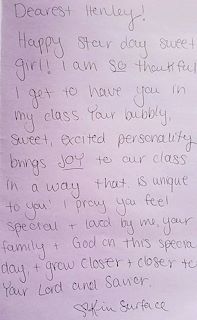 Dearest Henley!
Happy star day sweet
girl! I am so thankful
I get to have you in
my class. Your bubbly,
sweet, excited personality
brings JOY to our class
in a way that is unique
to you! I pray you feel
special + loved by me, your
family + God on this special
day + grow closer + closer to
Your Lord and Savior.
Surface